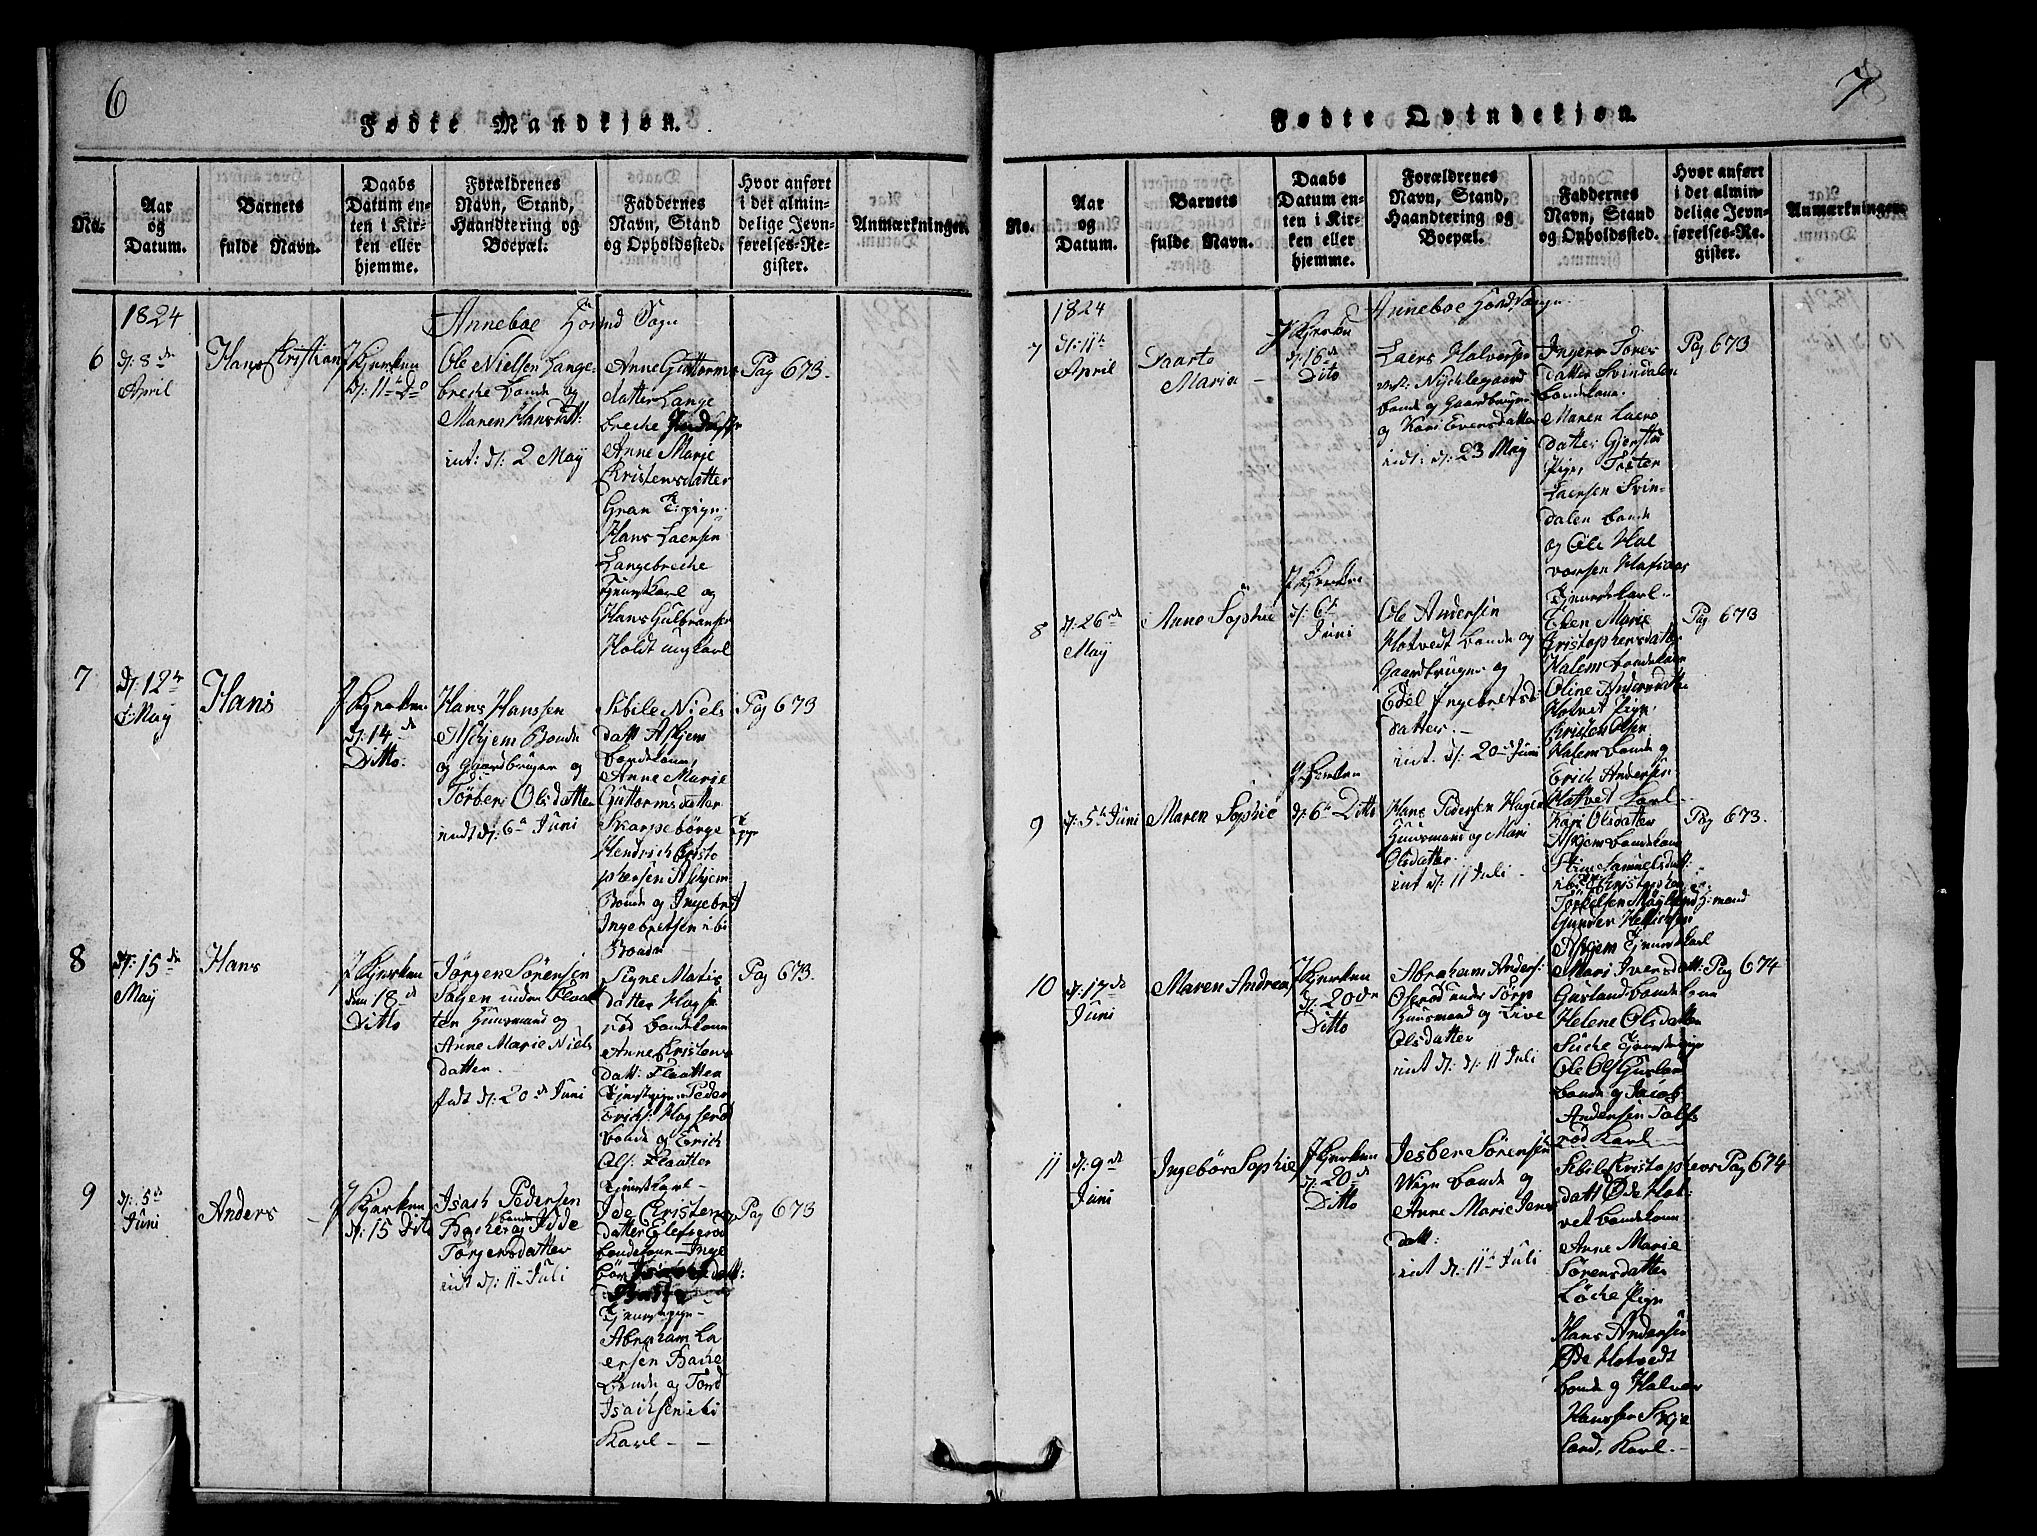 6
Fødte Mandkjøn.
No.
Aar
og
Datum.
Barnets
fulde Navn.
Daabs
Datum en-
ten i Kir-
ken eller
hjemme.
Forældrenes
Navn, Stand,
Haandtering og
Boepæl.
Faddernes
Navn, Stand
og Opholdssted.
Hvor anført
i det almin-
delige Jevn-
førelses-Re-
gister.
Anmærkninger.
1824
Anneboe Hovind Sogn
6
d: 8de
April
Hans Kristian
J Kjerken
d: 11te Do
Ole Nielsen Lange-
breche bonde og
Maren Hansdatt:
int: d: 2 May
Anne Guttorms
datter Lange
breche
Anne Marie
Kristensdatter
Gran
Hans Laersen
Langebreche
Tjenestkarl og
Hans Gulbransen
Holdt ungkarl
Pag 673.
7
d: 12te
May
Hans
J Kjerken
d: 14de
Ditto.
Hans Hanssen
Askjem Bonde
og Gaardbruger og
Torber Olsdatter
indt d: 6te Juni
Sibile Niels
datt Askjem
bondekone,
Anne Marie
Guttormsdatter
Skarpebörge
Hendrich Kristo
phersen Askjem
Bonde og Ingebret
Ingebretsen ibi
Bonde
Pag 673
8
d: 15de
May
Hans
J Kjerken
den 18de
Ditto
Jörgen Sörensen
Solgen under Flaat
ten Huusmand og
Anne Marie Niels
datter.
indt d: 20de Juni
Signe Matis
datter Hogse
röd bondekone
Anne Kristens
datt: Flaatten
Tjenestpige Peder
Erichs: Hogseröd
bonde og Erich
Ols: Flaatten
Tjenestkarl
Pag 673.
9
d: 5te
Juni
Anders
J Kjerken
d: 15 Dito
Isach Pedersen
Backe bonde og Idde
Törgersdatter
int d: 11te Juli
Ide Kristens
datter Elefseröd
bondekone Inge
bör datt:
Tjenestpige
Abraham La
ersen Backe
Bonde og Tord
Isachsen ibi
Karl
Pag 673
7
Fødte Qvindekjøn.
No.
Aar
og
Datum.
Barnets
fulde Navn.
Daabs
Datum en-
ten i Kir-
ken eller
hjemme.
Forældrenes
Navn, Stand,
Haandtering og
Boepæl.
Faddernes
Navn, Stand
og Opholdssted.
Hvor anført
i det almin-
delige Jevn-
førelses-Re-
gister.
Anmærkninger.
1824
Anneboe Hovdsogn
7
d: 11te
April
Maria
J Kjerken
d: 16de
Dito
Laers Halvorsen
Nychlegaard
bonde og Gaardbruger
og Kari Evensdatter
indt: d: 23 May
Ingerr Tores
datter Svindalen
bondekone.
Maren Laers
datter Gjerstad
Pige, Torsten
Laersen Svin-
dalen bonde
og Ole Hal
vorsen
Tjenestkarl
Pag 673
8
d: 26de
May
Anne Sophie
J Kjerken
d: 6te
Juni
Ole Andersen
Hotvedt bonde og
Gaardbruger og
Edel Ingebrets
datter
int. d: 20de Juni
Elen Marie
Kristophersdatter
Halem bondekone
Oline Andersdatt:
Hotvet Pige.
Kristen Olsen
Halem bonde og
Erich Andersen
Hotvet Karl
Pag 673
9
d: 5te Juni
Maren Sophie
J Kjerken
d: 6te Ditto
Hans Pedersen Hagen
Huusmand og Mari
Olsdatter
int d: 11 Juli
Kari Olsdatter
Askjem bondekone
Stine Samuelsdatt:
ibi Kristopher
Torkelsen Höyland H:mand
Gunder Hellichsen
Askjem Tjenestkarl
Pag 673.
10
d: 17de
Juni
Maren Andrea
J Kjerken
d: 20de
Ditto
Abraham Anders:
Oseröd under Törp
Huusmand og Live
Olsdatter
int d: d: 11 Juli
Mari Iversdatt:
Gusland bondekone
Helene Olsdatter
Tjenestpige
Ole Ols Gusland
bonde og Jacob
Andersen Tolfs
röd Karl
Pag 674
11
d: 9de
Juni
Ingebör Sophie
J Kjerken
d: 20de
Ditto
Jesber Sörensen
Wegn bonde og
Anne Marie Jens
datt:
int d: 11te Juli
Sibile Kristophers
datt Øde Hot-
vet bondekone
Anne Marie
Sörensdatter
Löcke Pige
Hans Andersen
Øde Hotvedt
bonde og Halvor
Hanssen Skje
land, Karl.
Pag 674